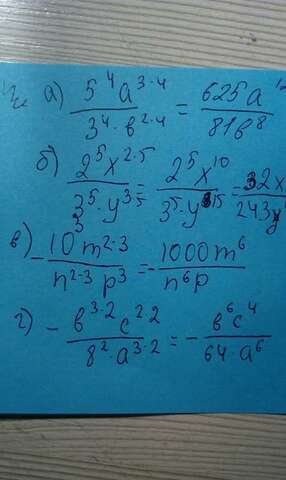 а) 5⁴a³·⁴ / 3⁴·в²·⁴ = 625a¹² / 81в⁸
б) 2⁵x²·⁵ / 3⁵·y³·⁵ = 2⁵x¹⁰ / 3⁵·y¹⁵ = 32x / 243y
в) - 10³m²·³ / n²·³p³ = - 1000m⁶ / n⁶p
г) - в³·²c²·² / 8²·a³·² = - в⁶c⁴ / 64·a⁶